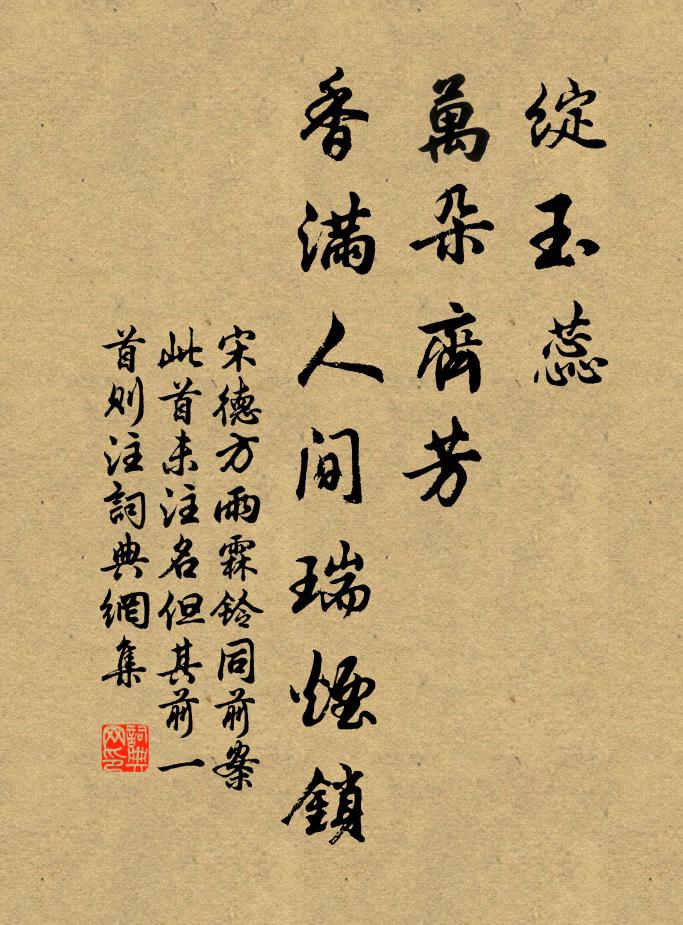 綻玉蕊
萬朵齊芳
香滿人间瑞煙鎖
宋德方雨霖鈴同前案
此首未注名但其前一
首则注詞典網集
詞典
网印